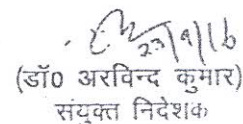 23/9/16
(डॉ0 अरविन्द कुमार)
संयुक्त निदेशक